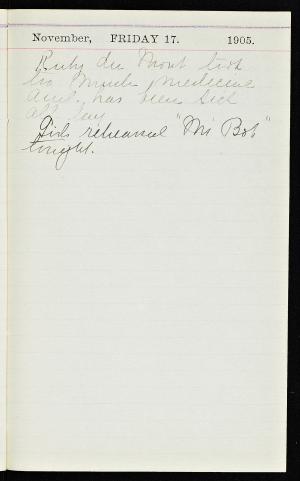 November, FRIDAY 17. 1905.
Ruby du Mont took
to much medicine
and has been sick
all day
Girls rehearsed "Mr Bob"
tonight.